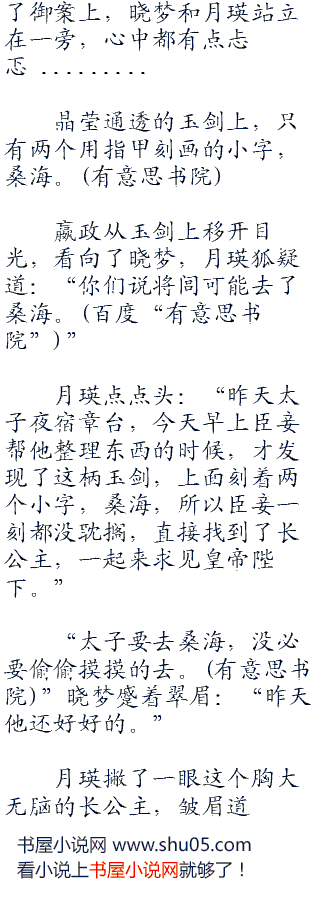 了御案上，晓梦和月瑛站立
在一旁，心中都有点忐
忑 .........
晶莹通透的玉剑上，只
有两个用指甲刻画的小字，
桑海。(有意思书院)
嬴政从玉剑上移开目
光，看向了晓梦，月瑛狐疑
道：“你们说将闾可能去了
桑海。(百度“有意思书
院”)”
月瑛点点头：“昨天太
子夜宿章台，今天早上臣妾
帮他整理东西的时候，才发
现了这柄玉剑，上面刻着两
个小字，桑海，所以臣妾一
刻都没耽搁，直接找到了长
公主，一起来求见皇帝陛
下。”
“太子要去桑海，没必
要偷偷摸摸的去。(有意思书
院)”晓梦蹙着翠眉：“昨天
他还好好的。”
月瑛撇了一眼这个胸大
无脑的长公主，皱眉道
书屋小说网 www.shu05.com
看小说上书屋小说网就够了！